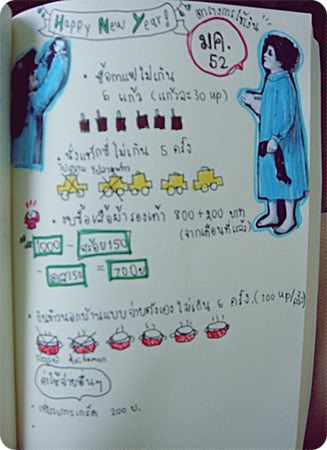 Happy New Year!
ตารางการใช้เงิน
มค.
52
• ซื้อกาแฟไม่เกิน
6 แก้ว (แก้วละ 30 up)
• นั่งแท็กซี่ไม่เกิน 5 ครั้ง
• งบซื้อเสื้อผ้ารองเท้า 800+200 บาท
(จากเดือนที่แล้ว)
1000 - สร้อย 150
- 150 = 700
• กินข้าวนอกบ้านแบบจ่ายตังเองไม่เกิน 6 ครั้ง. (100 up/ครั้ง)
ค่าใช้จ่ายอื่นๆ
200 บ.